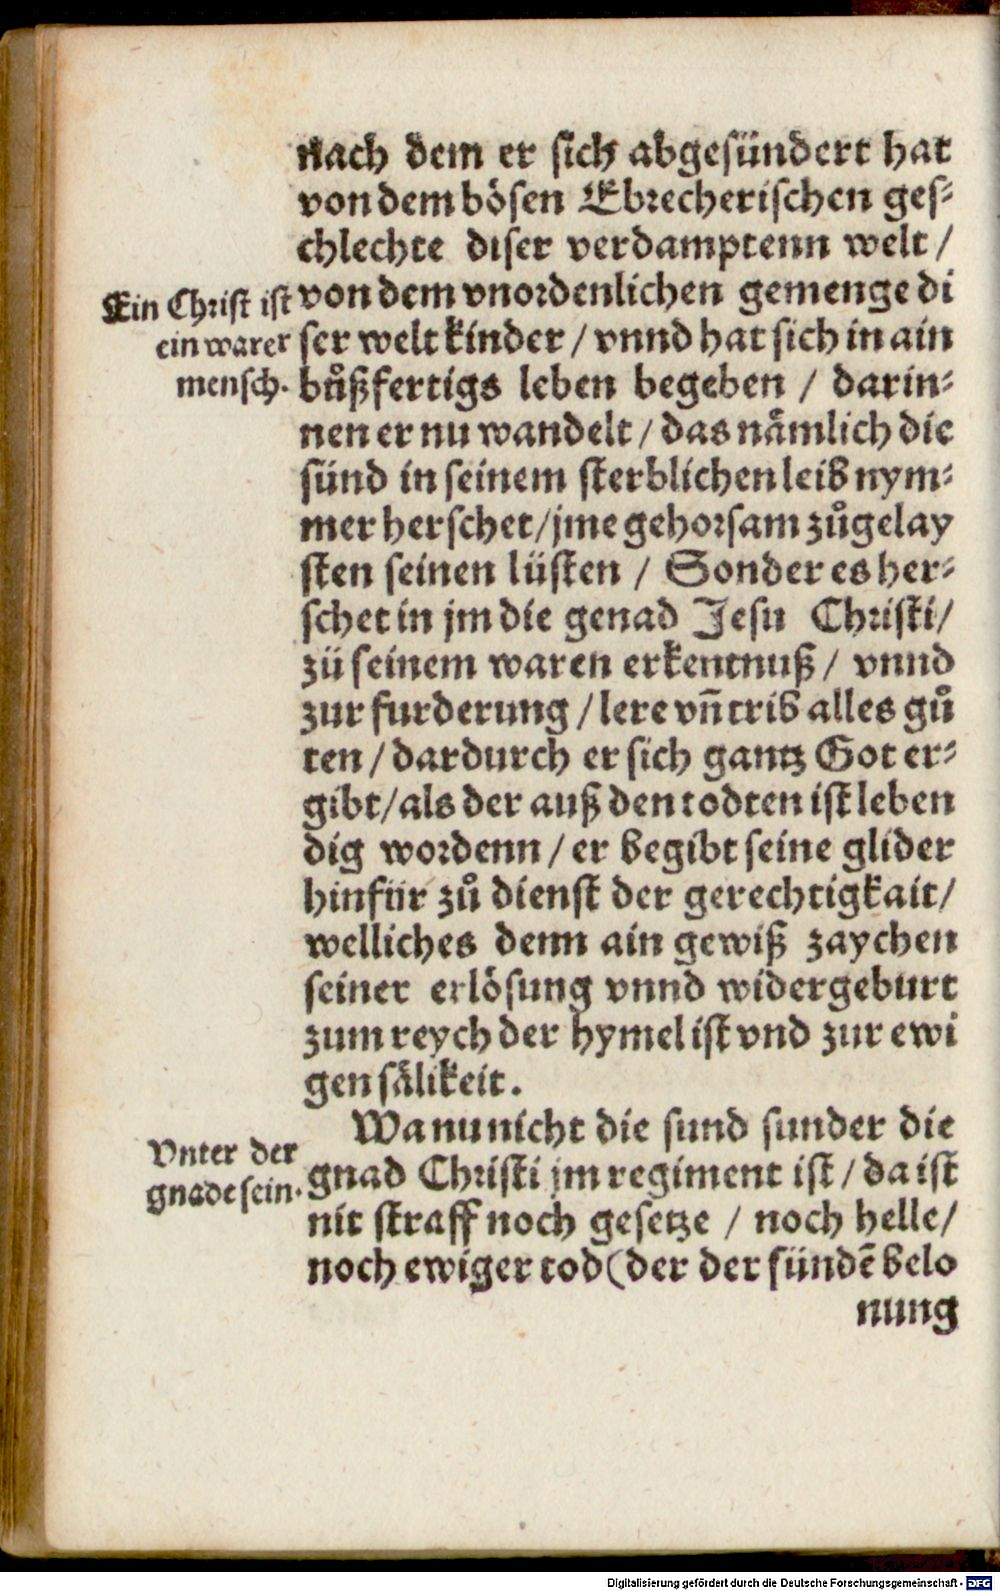 nach dem er sich abgesündert hat
von dem bösen Ebrecherischen ges-
chlechte diser verdamptenn welt /
Ein Christ ist
ein warer
mensch.
von dem vnordenlichen gemenge di
ser welt kinder / vnnd hat sich in ain
bůßfertigs leben begeben / darin-
nen er nu wandelt / das nämlich die
sünd in seinem sterblichen leib nym-
mer herschet / jme gehorsam zůgelay
sten seinen lüsten / Sonder es her-
schet in jm die genad Jesu Christi /
zü seinem waren erkentnuß / vnnd
zur furderung / lere vñ trib alles gů
ten / dardurch er sich gantz Got er-
gibt / als der auß den todten ist leben
dig wordenn / er begibt seine glider
hinfür zů dienst der gerechtigkait /
welliches denn ain gewiß zaychen
seiner erlösung vnnd widergeburt
zum reych der hymel ist vnd zur ewi
gen sälikeit.
Vnter der
gnade sein.
Wa nu nicht die sund sunder die
gnad Christi jm regiment ist / da ist
nit straff noch gesetze / noch helle /
noch ewiger tod (der der sündẽ belo
nung
Digitalisierung gefördert durch die Deutsche Forschungsgemeinschaft - DFG